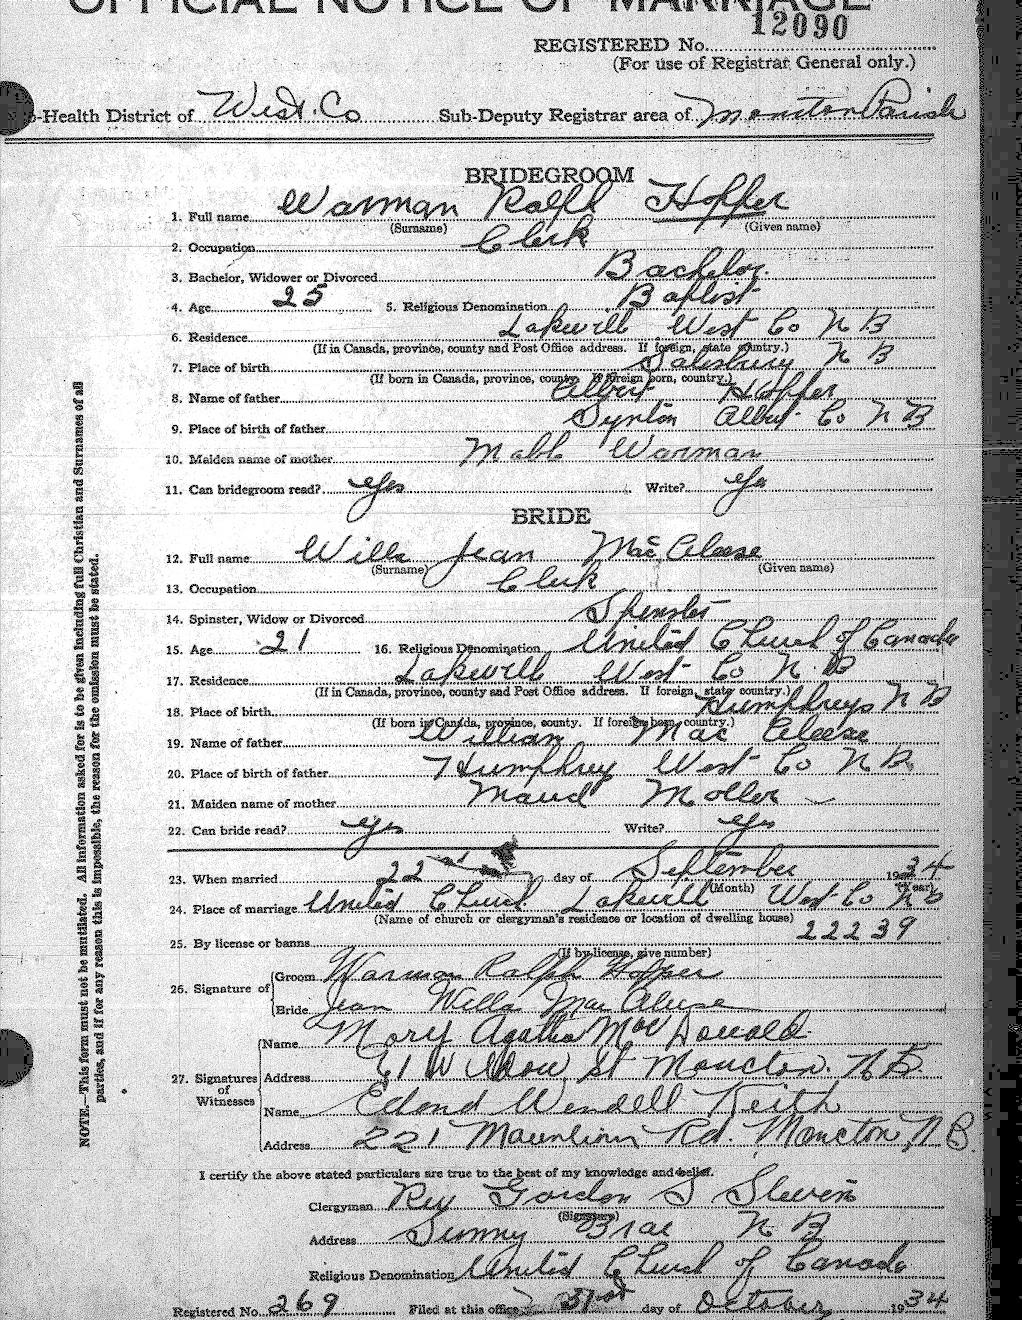 OFFICIAL NOTICE OF MARRIAGE
12090
REGISTERED No.
(For use of Registrar General only.)
-Health District of West. Co Sub-Deputy Registrar area of Moncton Parish
BRIDEGROOM
1. Full name Warman Ralph Hopper
(Surname) (Given name)
2. Occupation Clerk
3. Bachelor, Widower or Divorced Bachelor.
4. Age 25 5. Religious Denomination Baptist
6. Residence Lakevill West Co N B
(If in Canada, province, county and Post Office address. If foreign, state country.)
7. Place of birth Salesbury N B
(If born in Canada, province, county. If foreign born, country.)
8. Name of father Albert Hopper
9. Place of birth of father Synton Albert Co N B
10. Maiden name of mother Mable Warman
11. Can bridegroom read? yes Write? yes
BRIDE
12. Full name Willa Jean MacAleese
(Surname) (Given name)
13. Occupation Clerk
14. Spinster, Widow or Divorced Spinster
15. Age 21 16. Religious Denomination United Church of Canada
17. Residence Lakevill West Co N. B
(If in Canada, province, county and Post Office address. If foreign, state country.)
18. Place of birth Humphreys N B
(If born in Canada, province, county. If foreign born, country.)
19. Name of father William Mac Aleese
20. Place of birth of father Humphrey West Co N B.
21. Maiden name of mother Maud Moller
22. Can bride read? yes Write? yes
23. When married 22 day of September 1934
(Month) (Year)
24. Place of marriage United Church Lakevill West Co N B
(Name of church or clergyman's residence or location of dwelling house)
25. By license or banns 22239
(If by license, give number)
26. Signature of Groom Warman Ralph Hopper
Bride Jean Willa MacAleese
27. Signatures of Witnesses Name Mary Agatha MacDonald
Address 61 Willow St Moncton. N.B.
Name Edmond Wendell Keith
Address 221 Mountain Rd. Moncton, N.B.
I certify the above stated particulars are true to the best of my knowledge and belief.
Clergyman Rev Gordon S Steven
(Signature)
Address Sunny Brae N B
Religious Denomination United Church of Canada
Registered No. 269 Filed at this office 31st day of October 1934
NOTE.—This form must not be mutilated. All information asked for is to be given including full Christian and Surnames of all
parties, and if for any reason this is impossible, the reason for the omission must be stated.